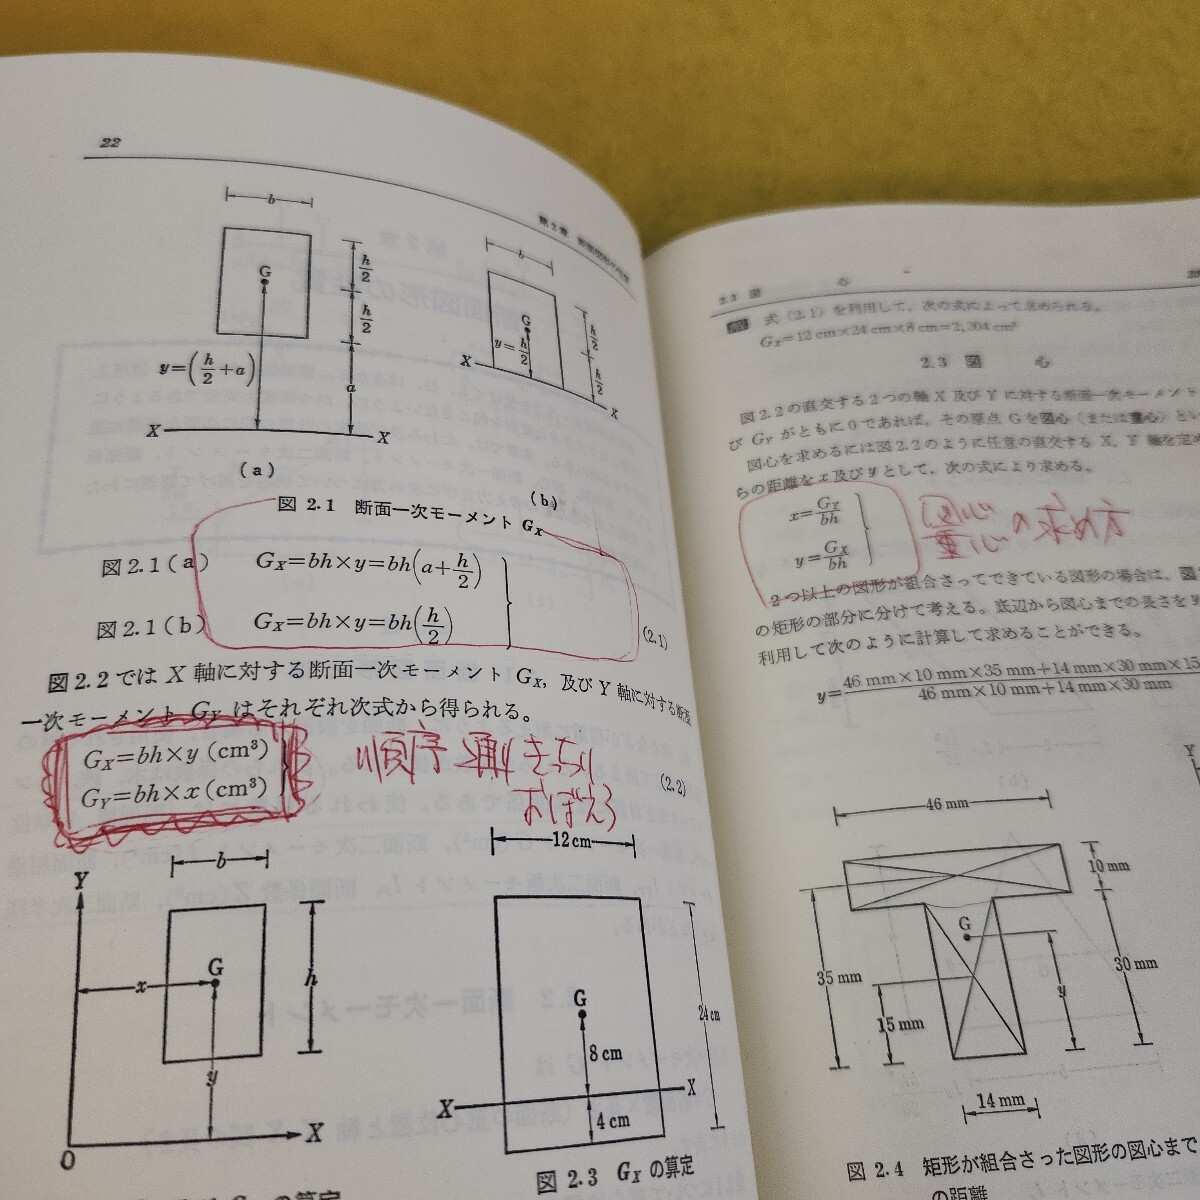 22
第2章 断面図形の性質
b
G
h/2
h/2
y=(h/2+a)
a
X
X
(a)
b
G
y=h/2
h/2
h/2
X
X
(b)
図 2.1 断面一次モーメント GX
図2.1(a) GX=bh×y=bh(a+h/2)
図2.1(b) GX=bh×y=bh(h/2)
(2.1)
図2.2では X 軸に対する断面一次モーメント GX, 及び Y 軸に対する断面
一次モーメント GY はそれぞれ次式から得られる。
GX=bh×y (cm³)
GY=bh×x (cm³)
(2.2)
順序通りきっちり
おぼえろ
Y
b
G
x
h
y
X
O
12cm
G
24cm
8cm
X
X
4cm
図 2.3 GX の算定
の算定
2.3 図 心
式 (2.1) を利用して, 次の式によって求められる。
GX=12cm×24cm×8cm=2,304cm³
2.3 図 心
図2.2の直交する2つの軸 X 及び Y に対する断面一次モーメント
び GY がともに0であれば, その原点 G を図心(または重心)とい
図心を求めるには図2.2のように任意の直交する X, Y 軸を定め
らの距離を x 及び y として, 次の式により求める。
x=GY/bh
y=GX/bh
図心
重心の求め方
2つ以上の図形が組合さってできている図形の場合は, 図
の矩形の部分に分けて考える。底辺から図心までの長さを y
利用して次のように計算して求めることができる。
y=46mm×10mm×35mm+14mm×30mm×15/46mm×10mm+14mm×30mm
46mm
10mm
G
35mm
30mm
y
15mm
14mm
図 2.4 矩形が組合さった図形の図心まで
の距離